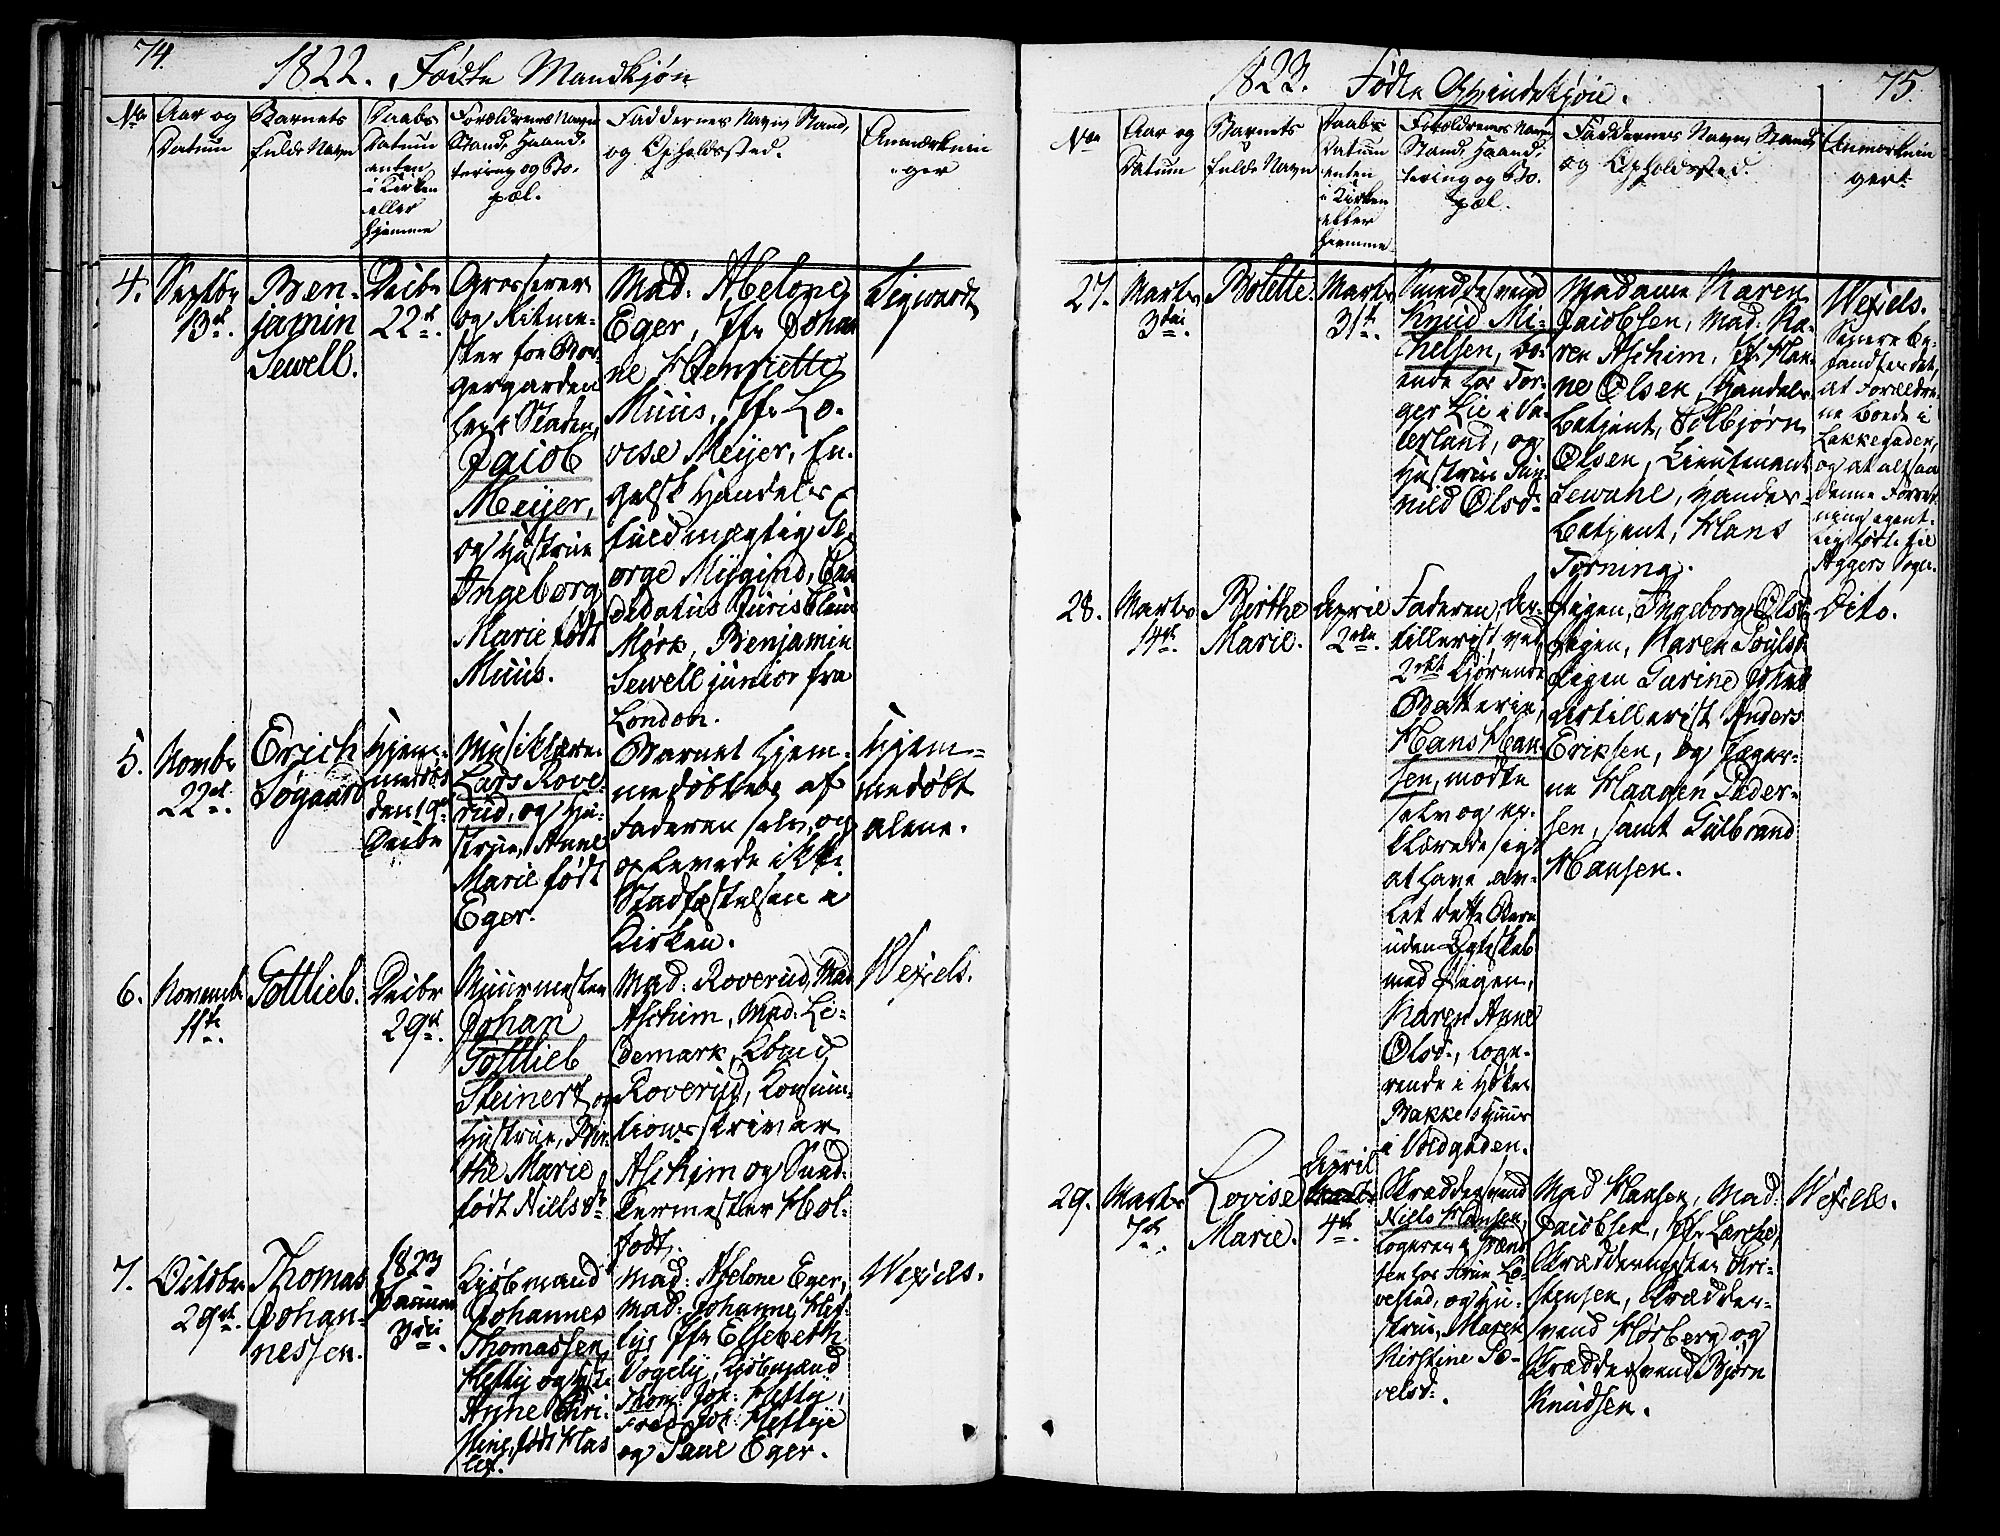 74.
1822. Fødte Mandkjøn
No
Aar og
Datum
Barnets
fulde Navn
Daabs
Datum
enten
i Kirken
eller
hjemme
Forældrenes Navn
Stand, Haand-
tering og Bo-
pæl.
Faddernes Navn, Stand,
og Opholdssted.
Anmærknin
ger
4.
Septbr
13de
Ben-
jamin
Sewell.
Decbr
22de
Grosserer
og Ritme-
ster for Bor-
gergarden
her i Staden,
Jacob
Meijer,
og Hustrue
Ingeborg
Marie født
Muus.
Mad: Abelone
Eger, Jfr. Johan
ne Henriette
Muus, Jfr. Lo-
vise Meijer, En-
gelsk Handels
fuldmægtig Ge-
orge Mygind, Can
didatus Juris Claus
Mørk, Benjamin
Sewell junior fra
London.
Sigwardt
5.
Novmbr
22de
Erich
Søgaard
Hjem-
medøbt
den 19de
Decbr
Musiklærer
Lars Rove-
rud, og Hu-
strue, Anne
Marie født
Eger.
Barnet hjem-
medøbtes af
Faderen selv, og
oplevede ikke
Stadfæstelsen i
Kirken.
Hjem-
medøbt
alene.
6.
Novembr
11te
Gottlieb.
Decbr
29de
Muurmester
Johan
Gottlieb
Steinert og
Hustrue, Bir-
the Marie
født Nielsdr
Mad: Roverud, Mad
Aschim, Mad: Li-
demark, Kbmd
Roverud, Konsum-
tionsskriver
Aschim og Sned-
kermester Hol-
fodt.
Wexels.
7.
Octobr
29de
Thomas
Johan-
nessen.
1823
Januar
3die
Kjøbmand
Johannes
Thomassen
Heftÿ og Hustr
Anne Chri-
stine, født Has
lef.
Mad: Abelone Eger,
Mad: Johanne Hef-
tÿ, Jfr Elsebeth
Vogelÿ, Kjøbmænd
Thom: Joh: Heftÿ,
Fred: Joh: Heftÿe
og Paul Eger.
Wexels.
1823. Fødte Qvindekjøn.
75.
No
Aar og
Datum
Barnets
fulde Navn
Daabs
Datum
enten
i Kirken
eller
hjemme
Forældrenes Navn
Stand, Haand-
tering og Bo-
pæl.
Faddernes Navn, Stand,
og Opholdssted.
Anmærknin
ger
27.
Marts
3die
Bolette.
Marts
31te
Smeddesvend
Knud Mi-
chelsen, bo-
ende hos Tor-
ger Lie i Va-
terland, og
Hustrue Gun-
nild Olsdr
Madame Karen
Jacobsen, Mad: Ka-
ren Aschim, Jfr Han-
ne Olsen, Handels-
betjent, Tolbjørn
Olsen, Lieutenant
Lewahl, Handels-
betjent, Hans
Torning.
Wexels.
Senere be-
fandtes det,
at Forældre-
ne boede i
Lakkegaden,
og at altsaa
denne Forret-
ning egent-
lig hørte til
Aggers Sogn.
28.
Marts
14de
Birthe
Marie.
April
2den
Faderen, Ar-
tillerist, ved
2det kjørende
Batterie,
Hans Han-
sen, mødte
selv og er-
klærede sig
at have av-
let dette Barn
uden Ægteskab
med Pigen,
Karen Anne
Olsd., loge-
rende i Høker
Bakkes Huus
i Vedgaden.
Pigen, Ingeborg Olsd
Pigen, Karen Poulsd
Pigen Gurine Johnsd
Artillerist Anders
Eriksen, og Jæger-
ne Haagen Peder-
sen, samt Gulbrand
Hansen.
Dito.
29.
Marts
7de
Lovise
Marie.
April
Marts
4de
Skræddersvend
Niels Hansen,
logeren i Grænd
sen hos Frue Lö-
vestad, og Hu-
strue, Maren
Kirstine Sö-
velsd.
Mad Hansen, Mad:
Jacobsen, Jfr. Larche,
Skræddermester Chri-
stensen, Skrædder-
svend Hørberg og
Skræddersvend Bjørn
Knudsen.
Wexels.